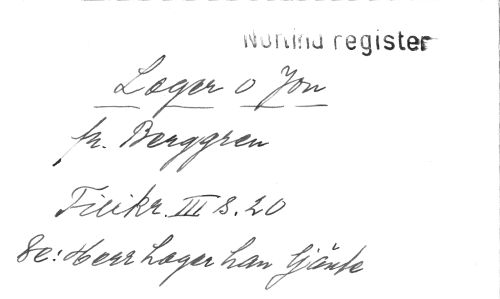 Norlind register
Lager o Jon
fr. Berggren
Filikr. III s. 20
Se: Herr Lager han tjänte